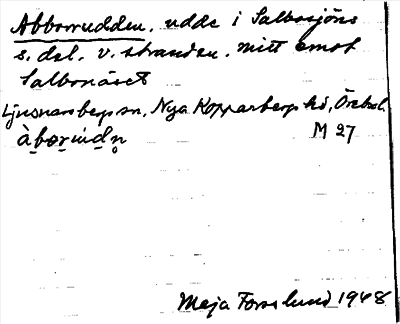 Abborrudden, udde i Salbosjöns
s. del. v. stranden. mitt emot
Salbonäset
Ljusnarsbergs sn, Nya Kopparbergs hd, Örebro l.
àborudn̥ M 27
Maja Forslund 1948